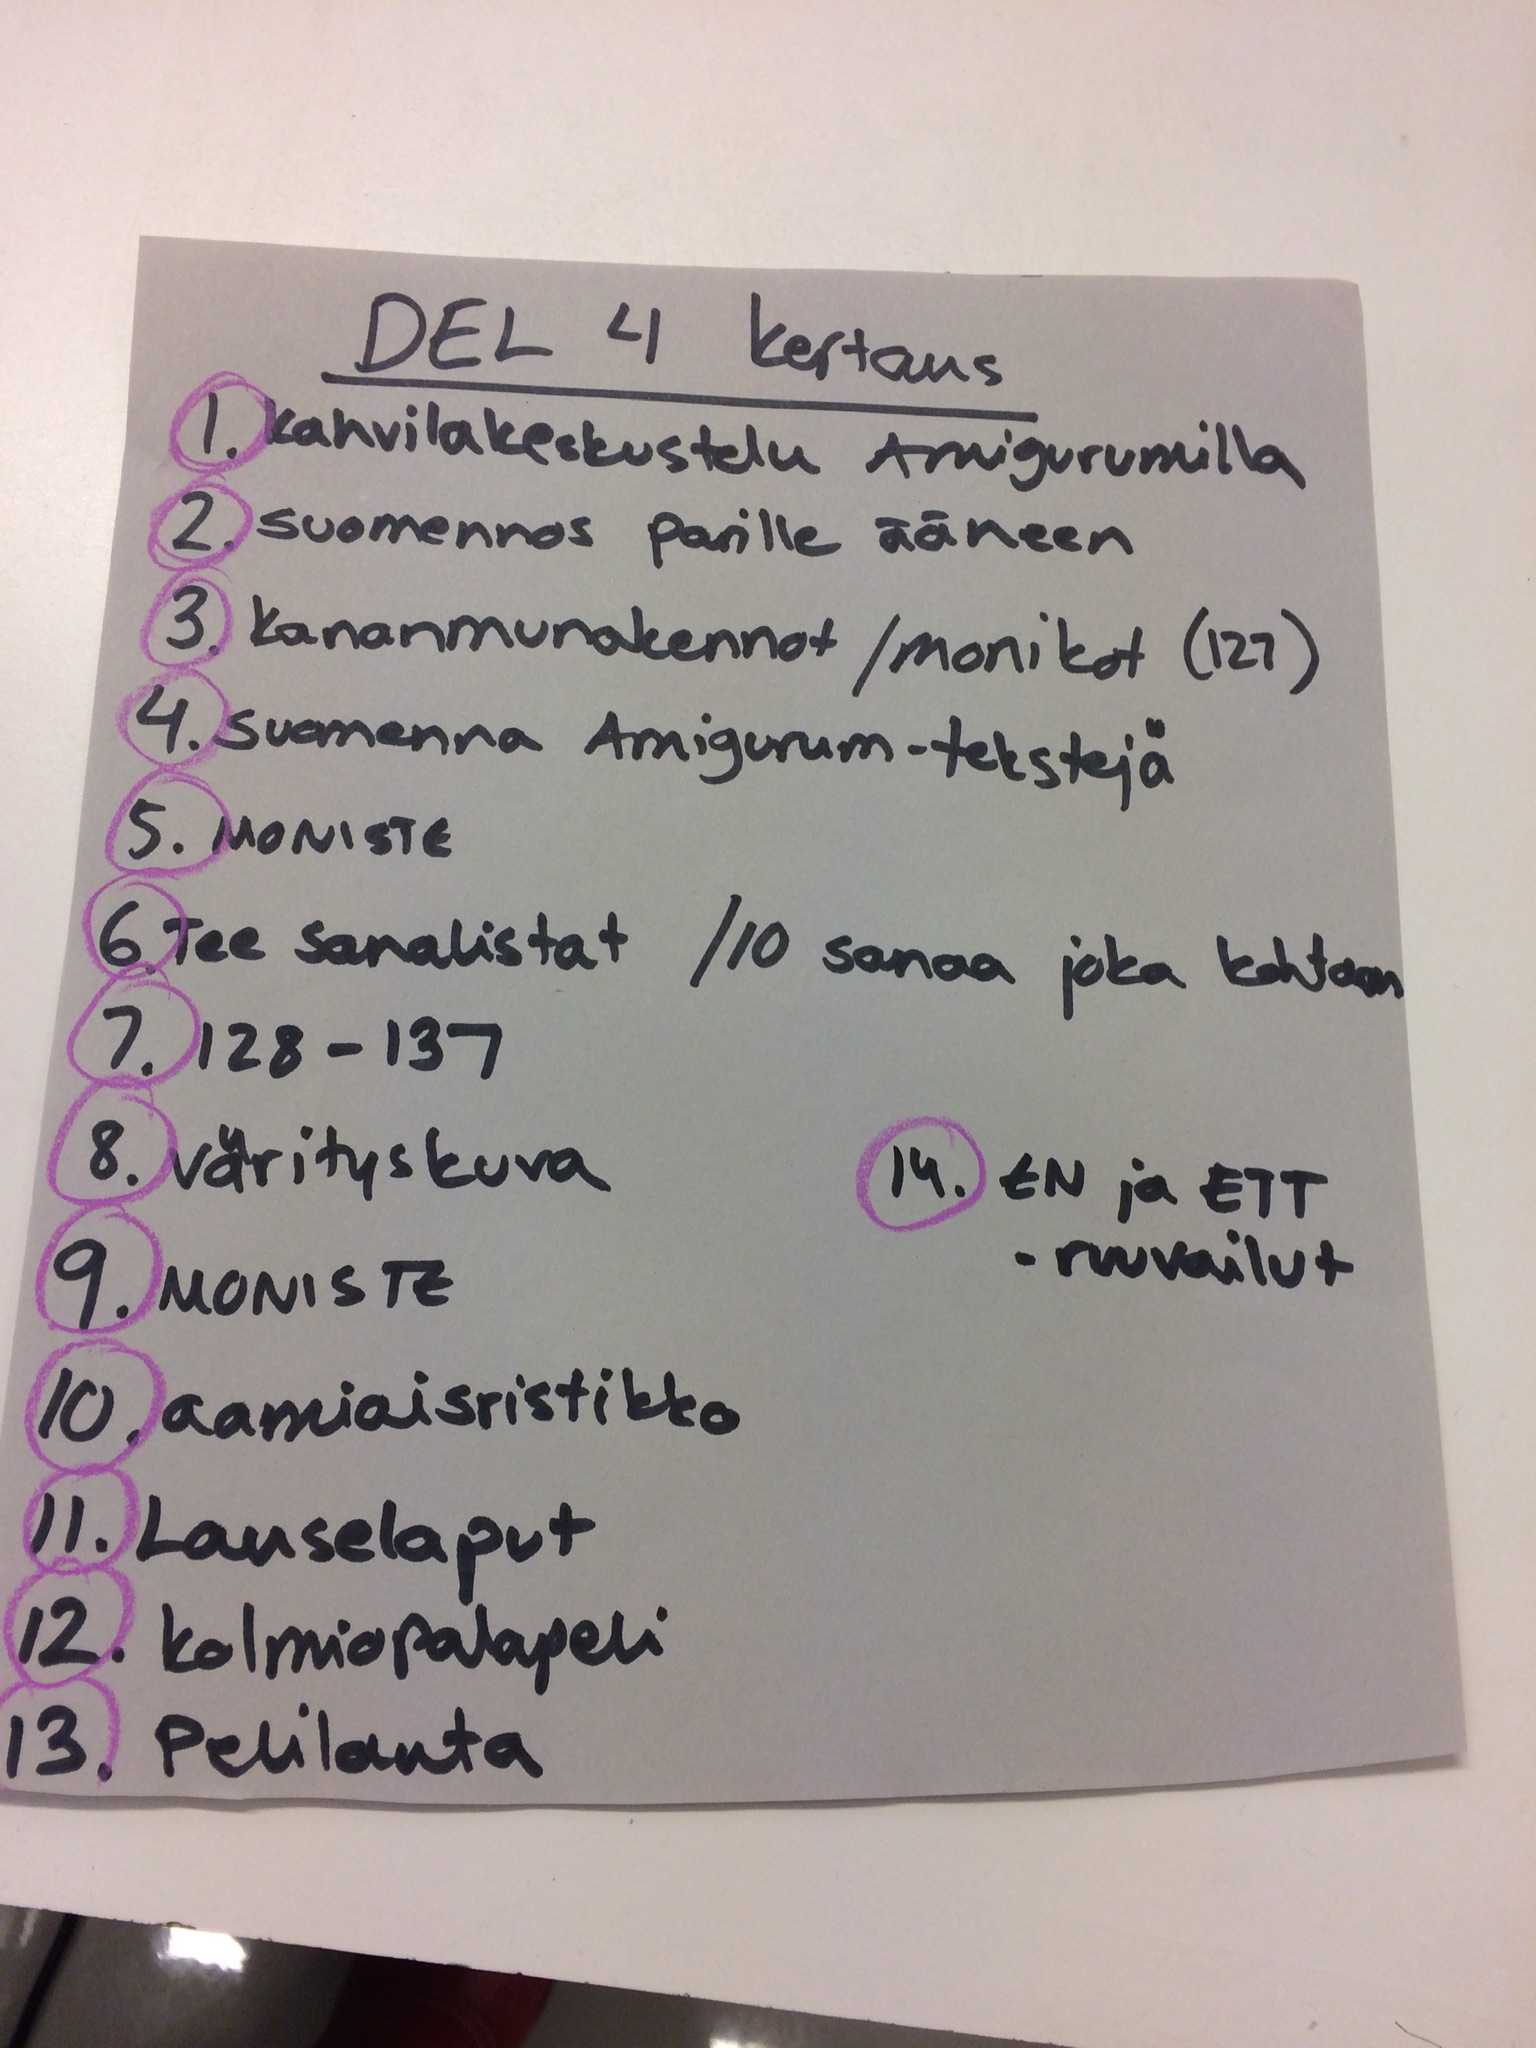 DEL 4 kertaus
1. kahvilakeskustelu Amigurumilla
2. suomennos parille ääneen
3. kananmunakennot /monikot (127)
4. suomenna Amigurum-tekstejä
5. MONISTE
6. Tee sanalistat /10 sanaa joka kohtaan
7. 128-137
8. värityskuva
9. MONISTE
10. aamiaisristikko
11. Lauselaput
12. kolmiopalapeli
13. Pelilauta
14. EN ja ETT
-ruuvailut